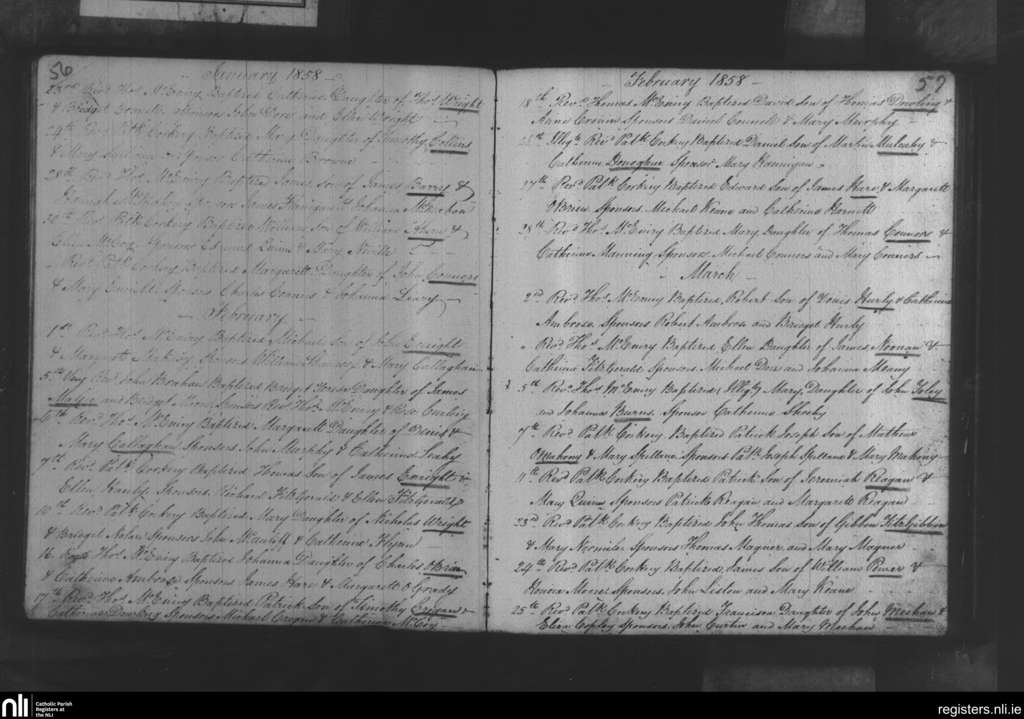 56
January 1858
23rd Revd Thos McEniry Baptized Catherine Daughter of Thos Wright
& Bridget Sponsors John Dore and Ellen Wright
24th Revd Patk Corkery Baptized Mary Daughter of Timothy Collins
& Mary Sponsor Catherine Browne
25th Revd Thos McEniry Baptized James Son of James Barry &
Hannah Sponsors James & Johanna McMahon
Revd Patk Corkery Baptized Son of William &
Ellen McCoy Sponsors Edmund Quinn & Mary Neville
Revd Patk Corkery Baptized Margarett Daughter of John Connors
& Mary Sponsors Charles Connors & Johanna Leary
February
1st Revd Thos McEniry Baptized Michael Son of John Enright
& Margarett Sponsors William & Mary Callaghan
5th Very Revd John Brahan Baptized Bridget Daughter of James
Magee and Bridget Sponsors Revd Thos McEniry &
6th Revd Thos McEniry Baptized Margarett Daughter of Denis &
Mary Callaghan Sponsors John Murphy & Catherine Leahy
7th Revd Patk Corkery Baptized Thomas Son of James Enright &
Ellen Hanly Sponsors Richard FitzGerald & Ellen FitzGerald
10th Revd Patk Corkery Baptized Mary Daughter of Nicholas Wright
& Bridget Nolan Sponsors John & Catherine Flynn
16 Revd Thos McEniry Baptized Johanna Daughter of Charles OBrien
& Catherine Ambrose Sponsors James Hare & Margarett O Grady
17th Revd Thos McEniry Baptized Patrick Son of Timothy Cregan &
Catherine Sponsors Michael Cregan & Catherine McCoy
57
February 1858
18th Revd Thomas McEniry Baptized David Son of Thomas Dowling &
Anne Connors Sponsors Daniel Connell & Mary Murphy
Illigt Revd Patk Corkery Baptized Daniel Son of Martin Mulcahy &
Catherine Donoghue Sponsor Mary Hannigan
27th Revd Patk Corkery Baptized Edward Son of James Hare & Margarett
OBrien Sponsors Michael Keane and Catherine Hartnett
28th Revd Thos McEniry Baptized Mary Daughter of Thomas Connors &
Catherine Manning Sponsors Michael Connors and Mary Connors
March
2nd Revd Thos McEniry Baptized Robert Son of Louis Hurly & Catherine
Ambrose Sponsors Robert Ambrose and Bridget Hurly
Revd Thos McEniry Baptized Ellen Daughter of James Noonan &
Catherine FitzGerald Sponsors Michael Dore and Johanna Meany
5th Revd Thos McEniry Baptized Illgty Mary Daughter of John Foley
and Johanna Burns Sponsor Catherine Sheehy
7th Revd Patk Corkery Baptized Patrick Joseph Son of Mathew
OMahony & Mary Spellane Sponsors Patk Joseph Spellane & Mary Mahony
11th Revd Patk Corkery Baptized Patrick Son of Jeremiah Reagan &
Mary Quinn Sponsors Patrick Reagan and Margarett Reagan
23rd Revd Patk Corkery Baptized John Thomas Son of Gibbon FitzGibbon
& Mary Sponsors Thomas Magner and Mary Magner
24th Revd Patk Corkery Baptized James Son of William Power &
Honora Sponsors John Liston and Mary Keane
25th Revd Patk Corkery Baptized Daughter of John Meehan &
Eliza Copley Sponsors John Curtin and Mary Meehan
nli
Catholic Parish
Registers at
the NLI
registers.nli.ie